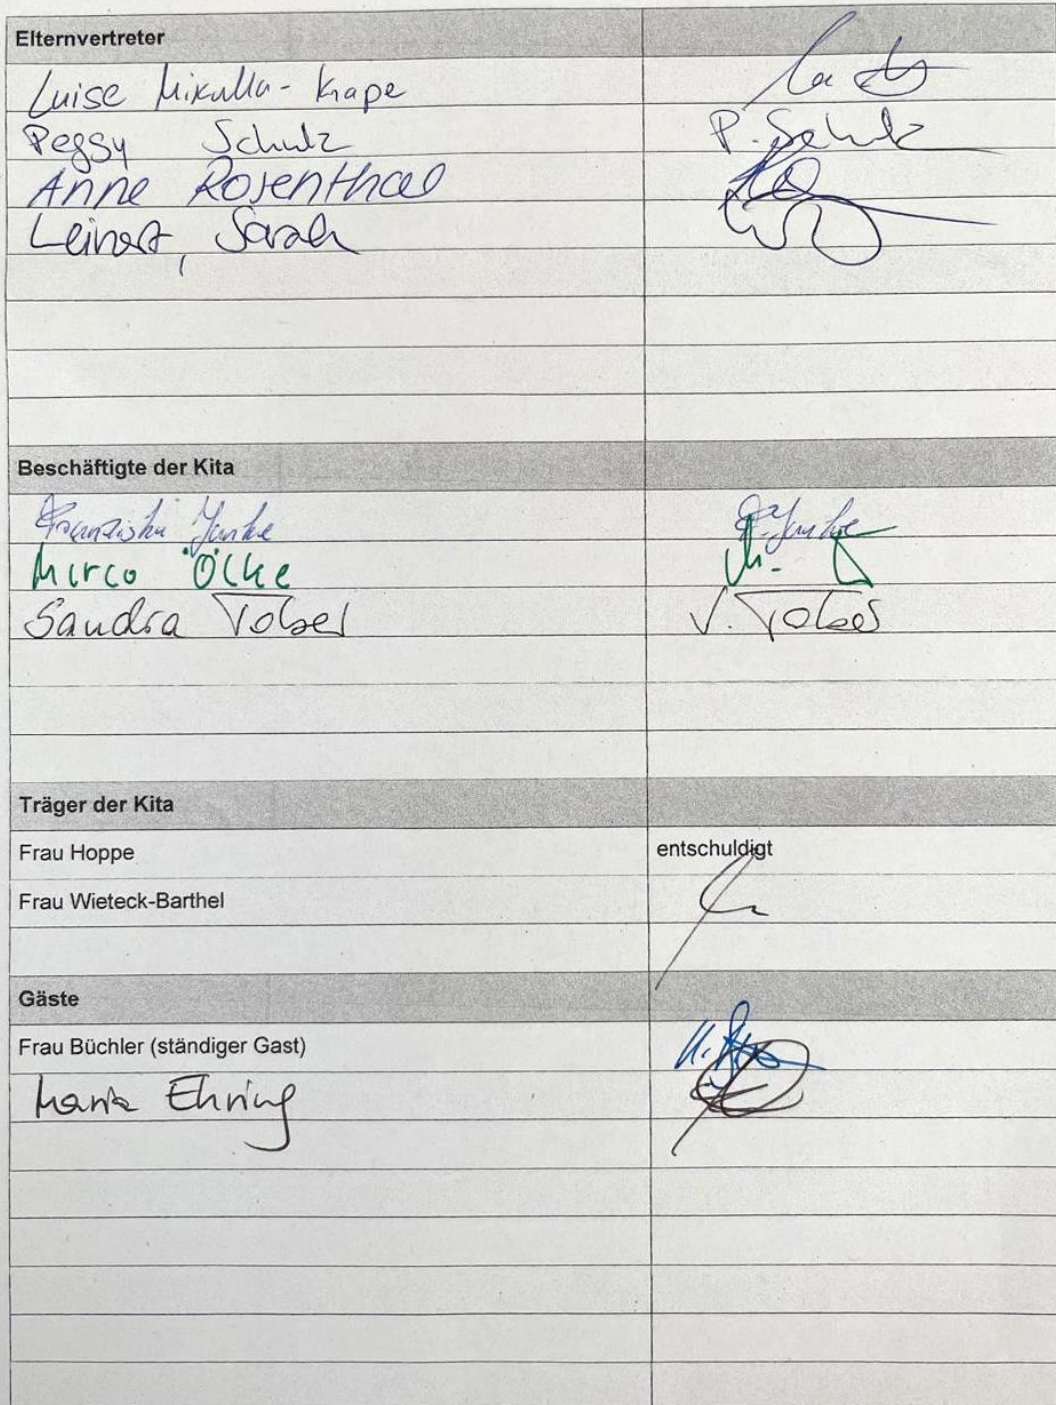 Elternvertreter
Luise Mikulla-Krape
Peggy Schulz P. Schulz
Anne Rosenthal
Leinert, Sarah
Beschäftigte der Kita
Franziska Junke F. Junke
Mirco Öcke
Sandra Tobel
Träger der Kita
Frau Hoppe entschuldigt
Frau Wieteck-Barthel
Gäste
Frau Büchler (ständiger Gast)
Maria Ehring